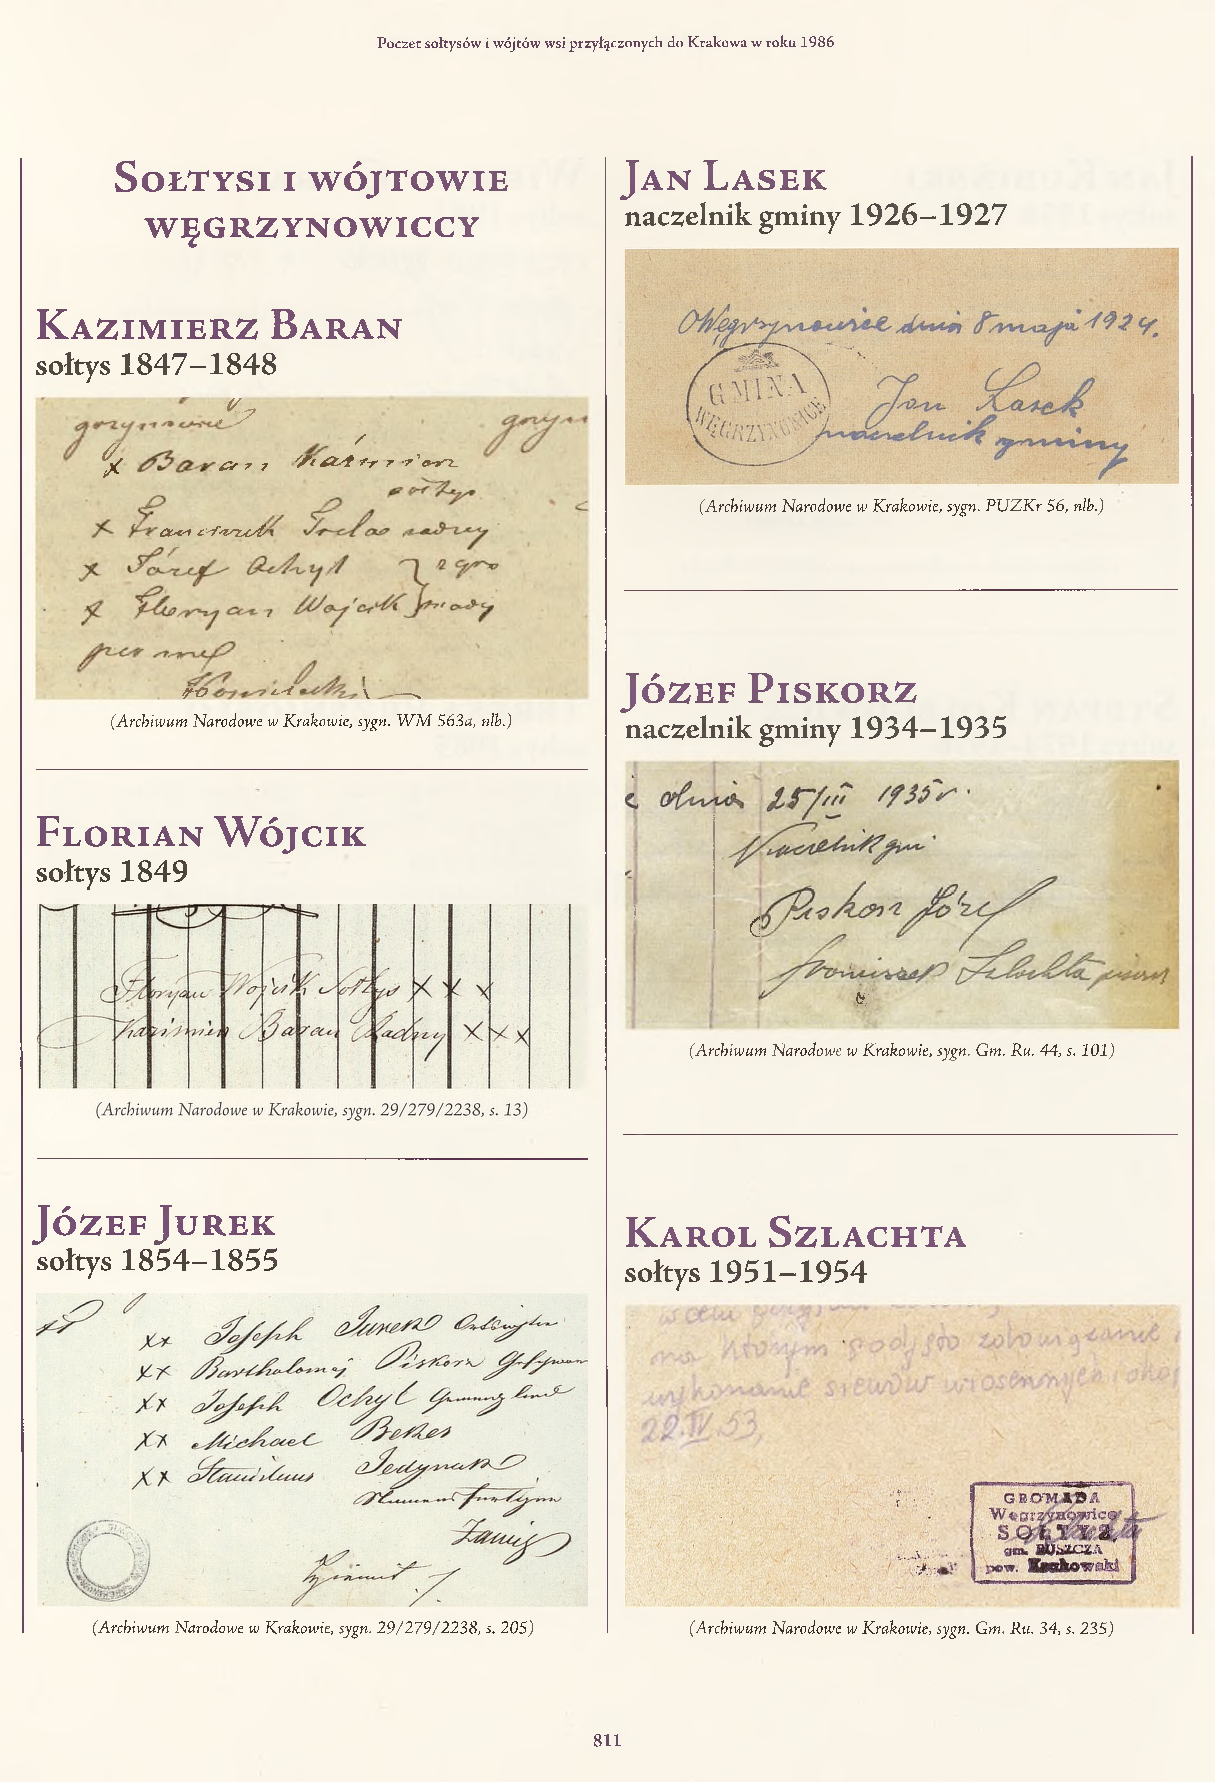 Poczet sołtysów i wójtów wsi przyłączonych do Krakowa w roku 1986
Sołtysi i wójtowie
węgrzynowiccy
Kazimierz Baran
sołtys 1847–1848
x Baran Kaźmierz
sołtys
x Franciszek Grelas radny
x Józef Ochyl
x Floryan Wojcik
per me
(Archiwum Narodowe w Krakowie, sygn. WM 563a, nlb.)
Florian Wójcik
sołtys 1849
Floryan Wojcik Sołtys X X X
Kazimierz Baran Radny X X X
(Archiwum Narodowe w Krakowie, sygn. 29/279/2238, s. 13)
Józef Jurek
sołtys 1854–1855
xx Joseph Jurek
xx Bartholomaj Piskorz
xx Joseph Ochyl
xx Michael Bekes
xx Stanislaus Jedynak
(Archiwum Narodowe w Krakowie, sygn. 29/279/2238, s. 205)
Jan Lasek
naczelnik gminy 1926–1927
Węgrzynowice dnia 8 maja 1924.
GMINA
WĘGRZYNOWICE
Jan Lasek
naczelnik gminy
(Archiwum Narodowe w Krakowie, sygn. PUZKr 56, nlb.)
Józef Piskorz
naczelnik gminy 1934–1935
dnia 25/III 1935 r.
Naczelnik gmi
Piskorz Józef
Franciszek Szlachta pisarz
(Archiwum Narodowe w Krakowie, sygn. Gm. Ru. 44, s. 101)
Karol Szlachta
sołtys 1951–1954
na którym podjęto zobowiązanie
wykonanie siewów wiosennych i
22.IV.53,
GROMADA
Węgrzynowice
SOŁTYS
gm. RUSZCZA
pow. Krakowski
(Archiwum Narodowe w Krakowie, sygn. Gm. Ru. 34, s. 235)
811